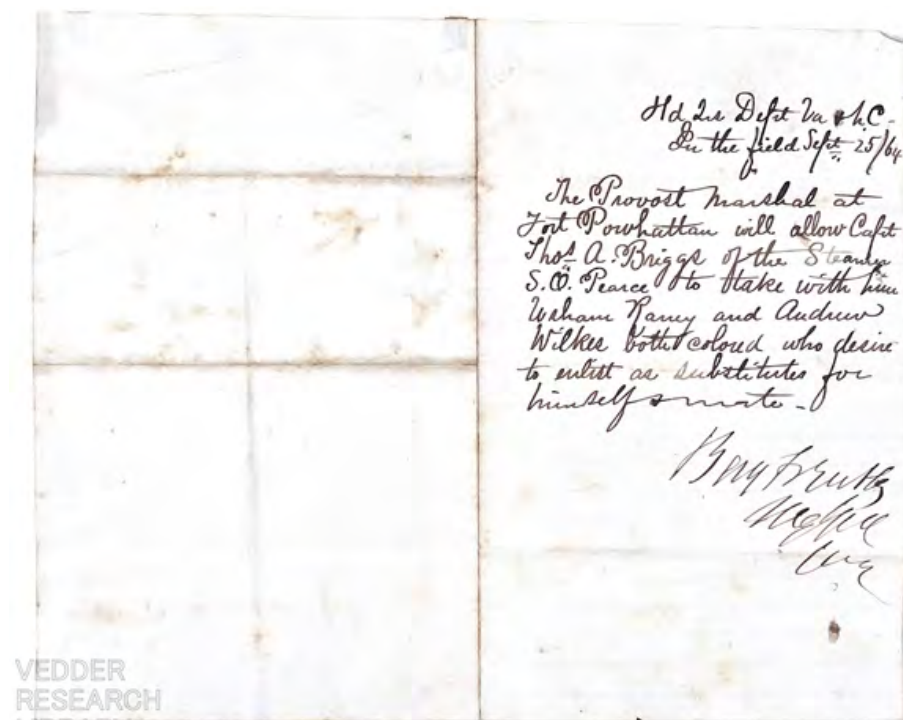 Hd Qrs Dept Va & N.C.
In the field Sept. 25/64
The Provost Marshal at
Fort Powhattan will allow Capt
Thos. A. Briggs of the Steamer
S.O. Pearce to take with him
Raney and Andrew
Wilkes both colored who desire
to enlist as substitutes for
himself & mate -
Benj F Butler
Maj Gen
VEDDER
RESEARCH